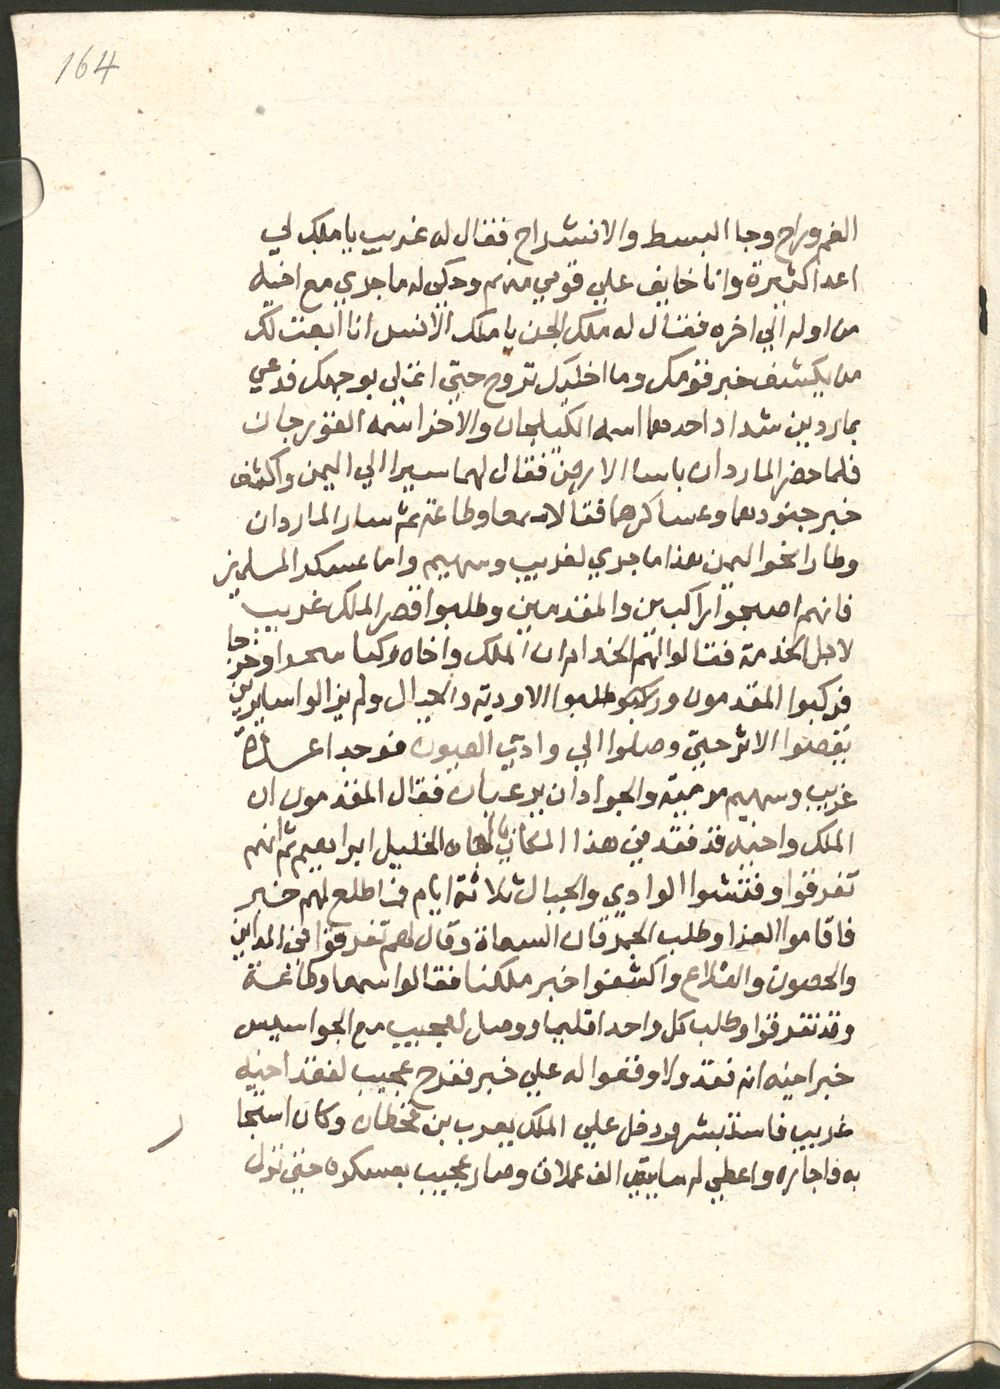 164
الغم وراح وجا البسط والانشراح فقال له غريب يا ملك لي
اعدا كثيرة وانا خايف علي قومي منهم وحكي له ما جري مع اخيه
من اوله الي اخره فقال له ملك الجن يا ملك الانس انا ابعت لك
من يكشف خبر قومك وما اخليك تروح حتي اتملي بوجهك فدعي
بماردين شداد احدهما اسمه الكيلجان والاخر اسمه القورجان
فلما حضر الماردان باسا الارض فقال لهما سيرا الي اليمن واكشف
خبر جنودهما وعساكرهما فقالا سمعا وطاعة ثم سار الماردان
وطارا نحو اليمن هذا ما جري لغريب وسهيم واما عسكر المسلمين
فانهم اصبحوا راكبين والمقدمين وطلبوا قصر الملك غريب
لاجل الخدمة فقالوا لهم الخدام ان الملك واخاه ركبا سحرا وخرجا
فركبوا المقدمون وركبوا طلبوا الاودية والجبال ولم يزالوا سايرين
يقصوا الاثر حتي وصلوا الي وادي العيون فوجدا عدة
غريب وسهيم مرمية والجوادان يرعيان فقال المقدمون ان
الملك واخيه قد فقد في هذا المكان يا لجاه الخليل ابراهيم ثم انهم
تفرقوا وفتشوا الوادي والجبال ثلاثة ايام فما اطلع لهم خبر
فاقاموا العزا وطلب الجمرقان السعاة وقال لهم تفرقوا في المداين
والحصون والقلاع واكشفوا خبر ملكنا فقالوا سمعا وطاعة
وقد تفرقوا وطلب كل واحد اقليما ووصل لعجيب مع الجواسيس
خبر اخيه انه فقد ولا وقفوا له علي خبر ففرح عجيب لفقد اخيه
غريب فاستبشر ودخل علي الملك يعرب بن قحطان وكان استجا
به فاجاره واعطي له مايتي الف عملاق وصار عجيب بعسكره حتي نزل